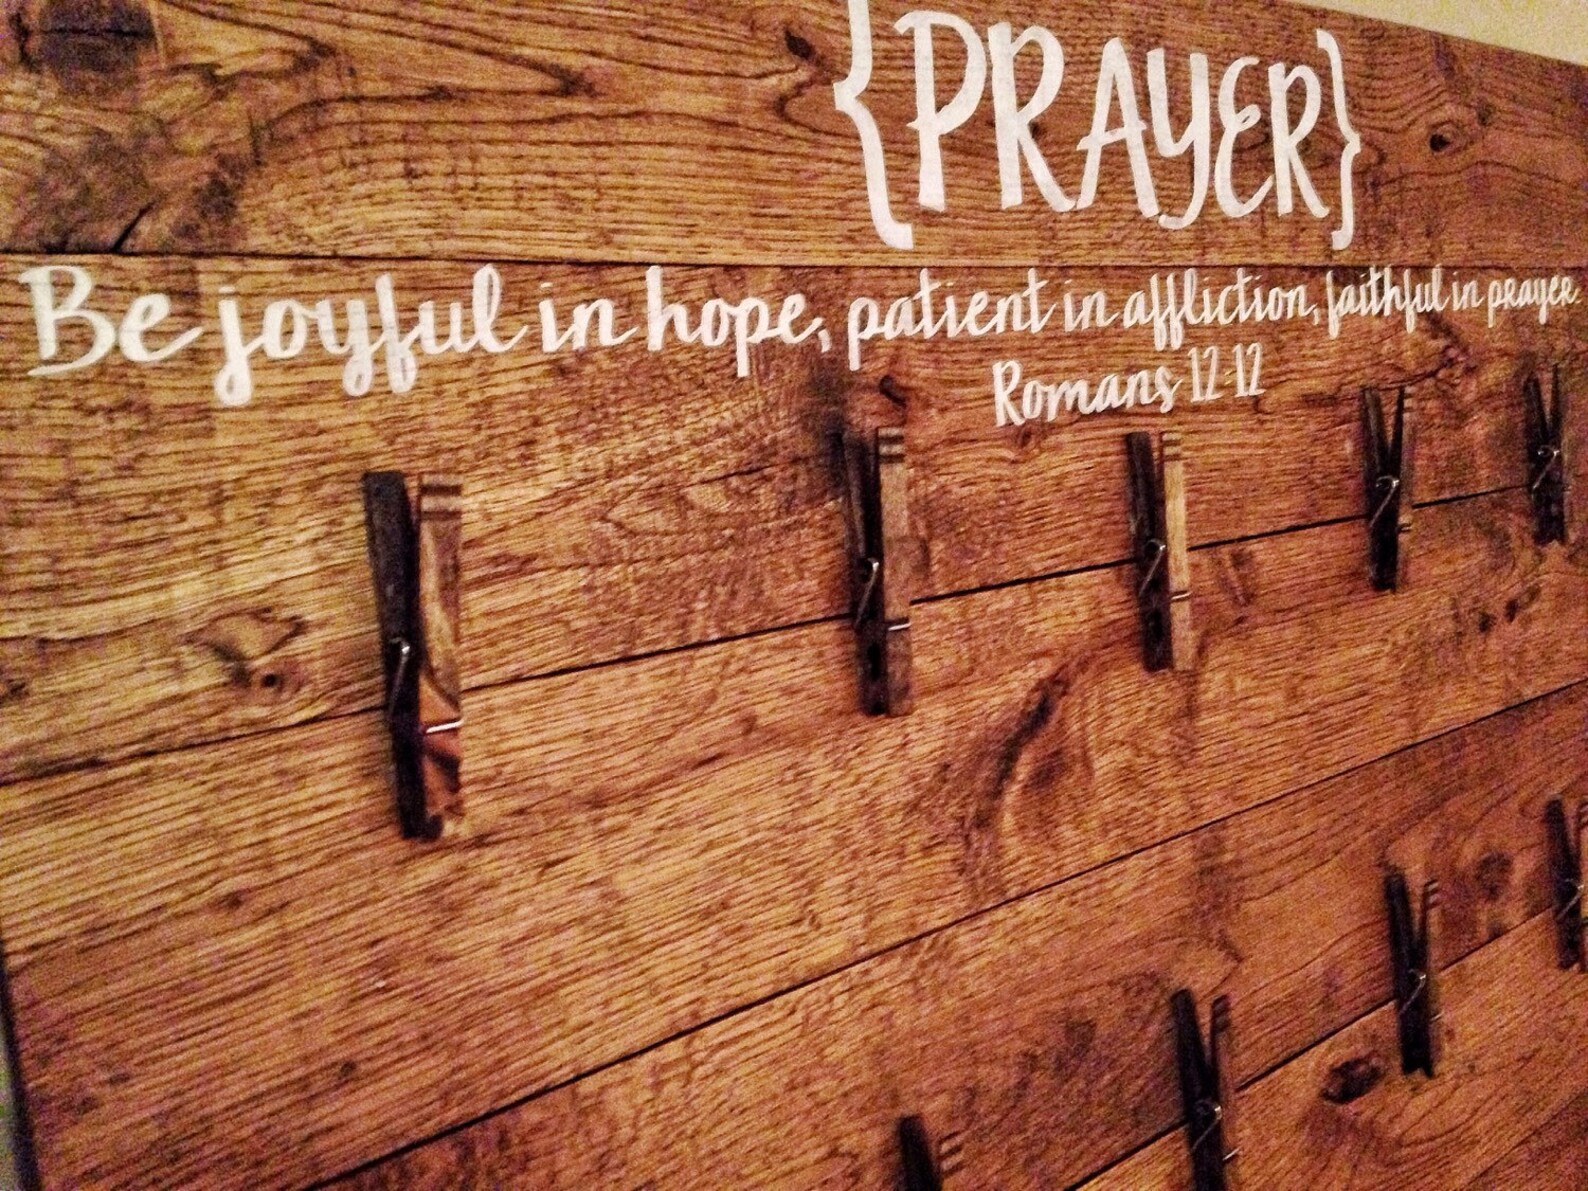 {PRAYER}
Be joyful in hope, patient in affliction, faithful in prayer.
Romans 12:12